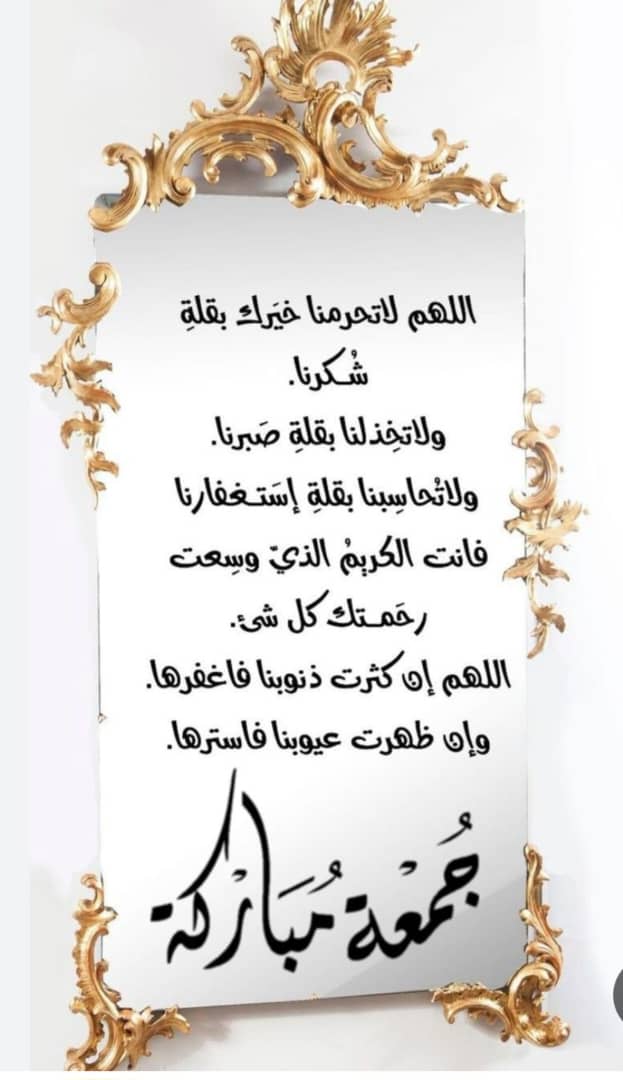 اللهم لاتحرمنا خيَرك بقلةِ
شُكرنا.
ولاتخِذلنا بقلةِ صَبرنا.
ولاتُحاسِبنا بقلةِ إسَتغفارنا
فانت الكريمُ الذيّ وسِعت
رحَمتك كل شئ.
اللهم إن كثرت ذنوبنا فاغفرها.
وإن ظهرت عيوبنا فاسترها.
جُمْعة مُبَارْكة